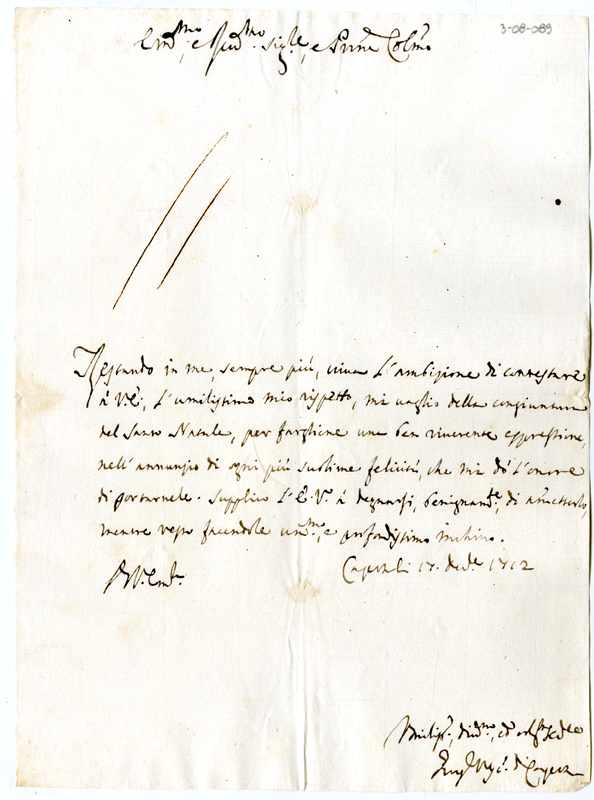 3-08-089
Em.mo, e Rev.mo Sig.re, e Prōne Col.mo
Restando in me, sempre più, viva l'ambizione di contestare
à V.E., l'umilissimo mio rispetto, mi vaglio della congiuntura
del Santo Natale, per fargliene una ben riverente espressione,
nell'annunzio di ogni più sublime felicità, che mi dò l'onore
di portarnele. Supplico l'E.V. à degnarsi, benignam.te, di accettarlo,
mentre resto facendole um.mo, e profondissimo inchino.
Di V. Em.a
17. 1712
Umiliss.